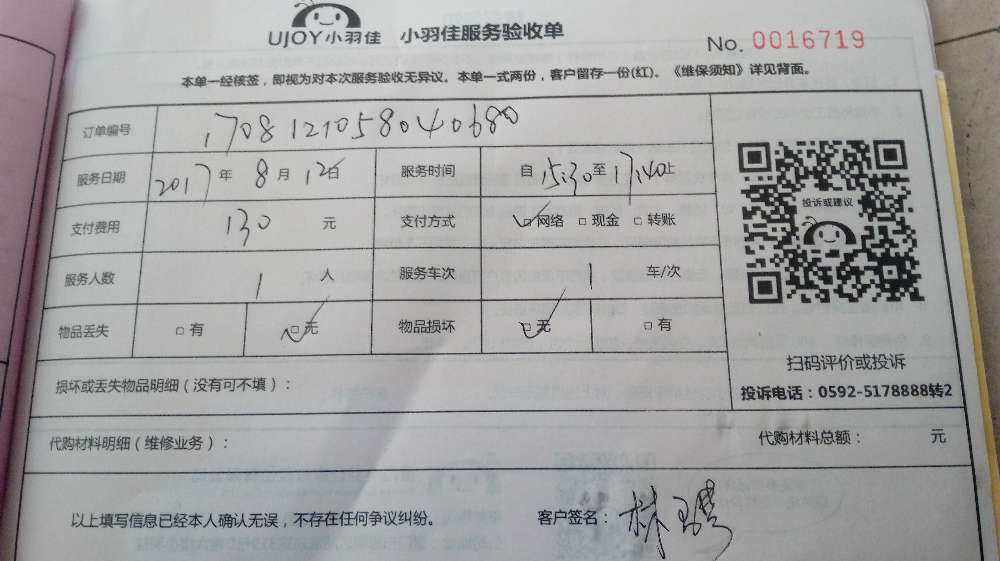 UJOY小羽佳 小羽佳服务验收单
No. 0016719
本单一经核签，即视为对本次服务验收无异议。本单一式两份，客户留存一份(红)。《维保须知》详见背面。
订单编号 170812105804068
服务日期 2017 年 8 月 12 日 服务时间 自 15:30 至 17:40 止
支付费用 130 元 支付方式 ☑网络 □现金 □转账
服务人数 1 人 服务车次 1 车/次
物品丢失 □有 ☑无 物品损坏 ☑无 □有
投诉或建议
扫码评价或投诉
投诉电话：0592-5178888转2
损坏或丢失物品明细（没有可不填）：
代购材料明细（维修业务）： 代购材料总额： 元
以上填写信息已经本人确认无误，不存在任何争议纠纷。 客户签名：林